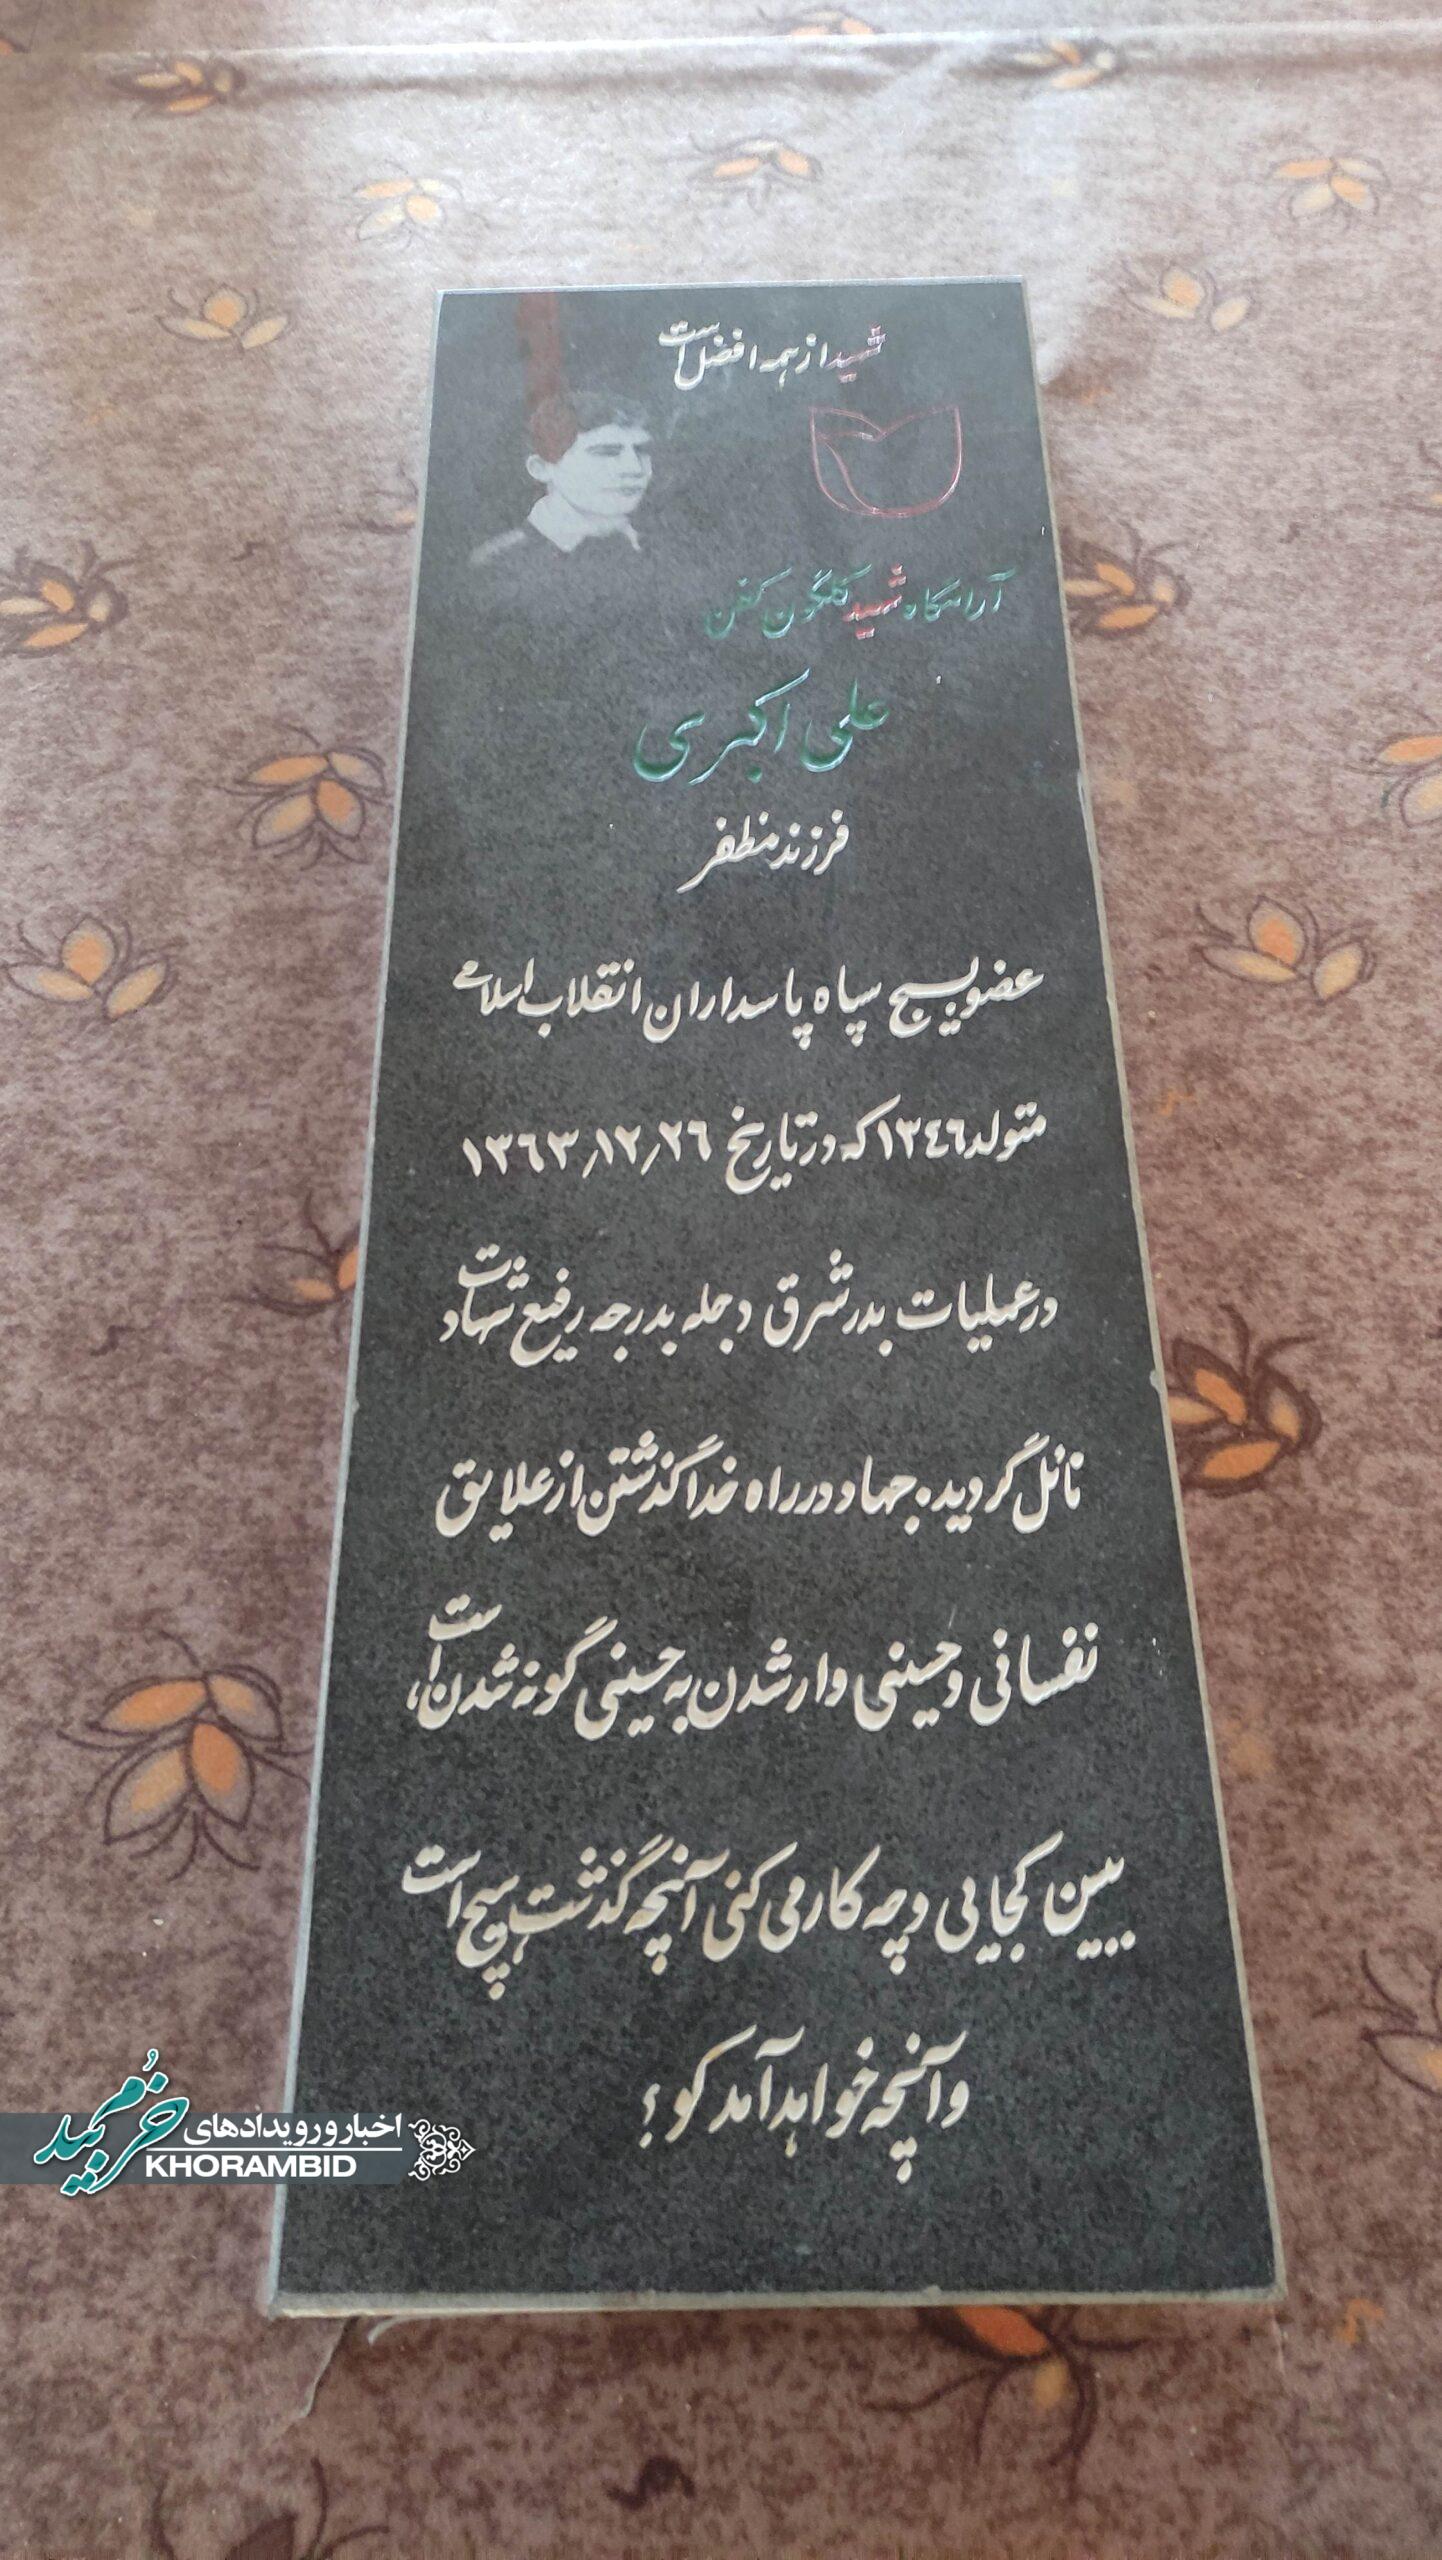 شهید از همه افضل است
آرامگاه شهید گلگون کفن
علی اکبری
فرزند مظفر
عضو بسیج سپاه پاسداران انقلاب اسلامی
متولد ۱۳٤٦ که در تاریخ ۱۳٦۳٫۱۲٫۲٦
در عملیات بدر شرق دجله بدرجه رفیع شهادت
نائل گردید. جهاد در راه خدا گذشتن از علایق
نفسانی و حسینی وار شدن به حسینی گونه شدن است،
ببین کجایی و چه کار می کنی آنچه گذشت هیچ است
و آنچه خواهد آمد کو؟
خرم بید
اخبار و رویدادهای
KHORAMBID